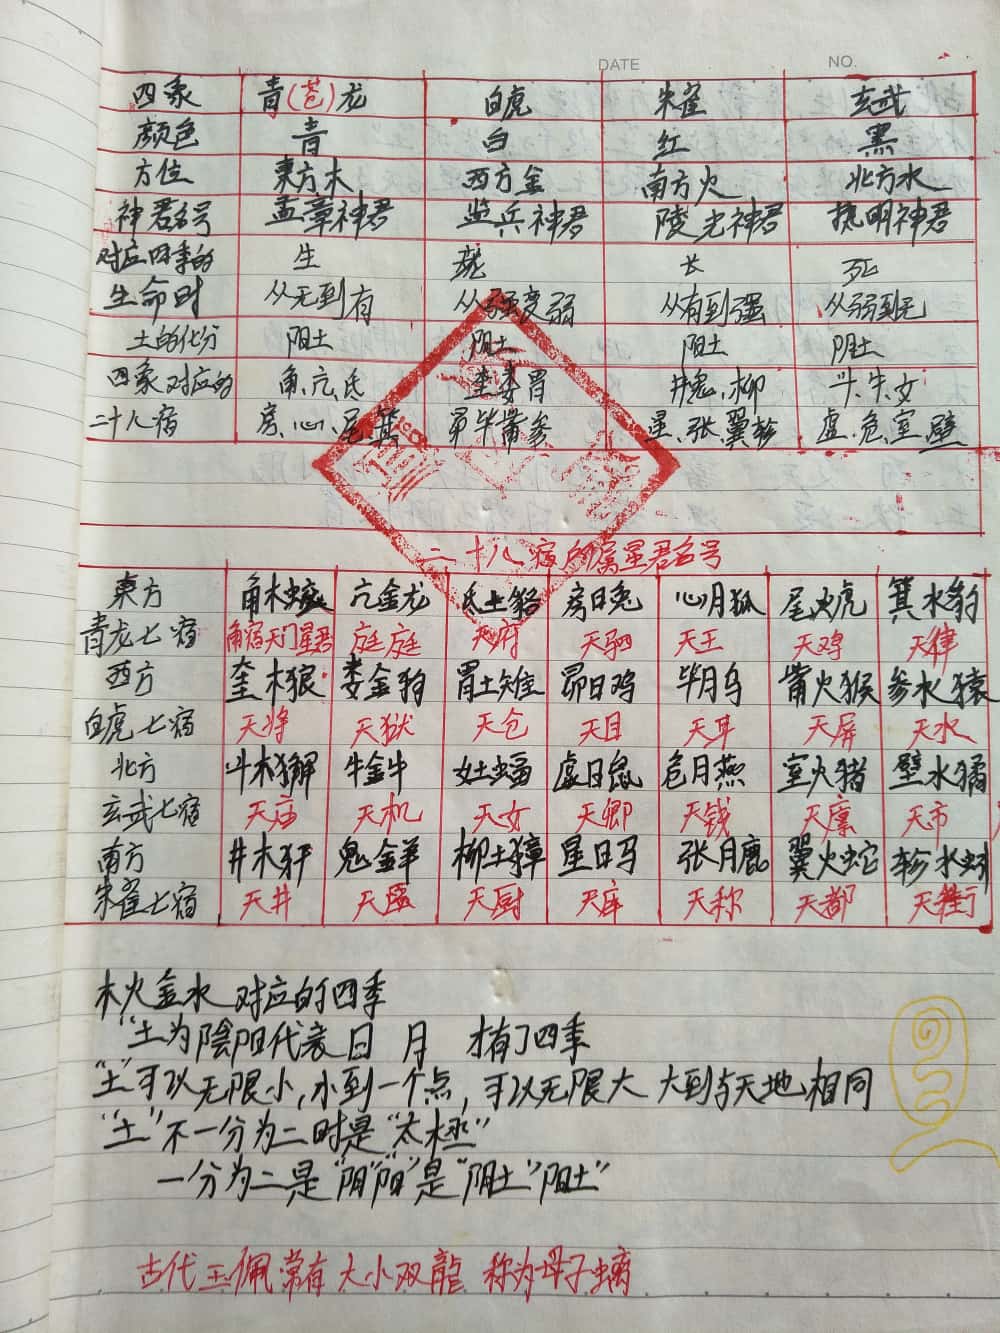 DATE NO.
四象 青(苍)龙 白虎 朱雀 玄武
颜色 青 白 红 黑
方位 東方木 西方金 南方火 北方水
神君名号 孟章神君 监兵神君 陵光神君 执明神君
对应四季的 生 老 长 死
生命时 从无到有 从强变弱 从有到强 从弱到无
土的化分 阳土 阴土 阳土 阴土
四象对应的 角、亢、氐 奎娄胃 井鬼、柳 斗、牛、女
二十八宿 房、心、尾、箕 昴毕觜参 星、张、翼轸 虚、危、室、壁
二十八宿 属星君名号
東方 角木蛟 亢金龙 氐土貉 房日兔 心月狐 尾火虎 箕水豹
青龙七宿 角宿天门星君 庭庭 天府 天驷 天王 天鸡 天律
西方 奎木狼 娄金狗 胃土雉 昴日鸡 毕月乌 觜火猴 参水猿
白虎七宿 天将 天狱 天仓 天目 天耳 天屏 天水
北方 斗木獬 牛金牛 女土蝠 虚日鼠 危月燕 室火猪 壁水㺄
玄武七宿 天庙 天机 天女 天卿 天钱 天廪 天市
南方 井木犴 鬼金羊 柳土獐 星日马 张月鹿 翼火蛇 轸水蚓
朱雀七宿 天井 天 天厨 天库 天称 天都 天街
木火金水 对应的四季
"土为陰阳代表 日 月 才有了四季
"土"可以无限小,小到一个点,可以无限大 大到与天地相同
"土"不一分为二时是"太极"
一分为二是"阴""阳"是"阴土""阳土"
古代玉佩常有 大小双龍 称为母子螭